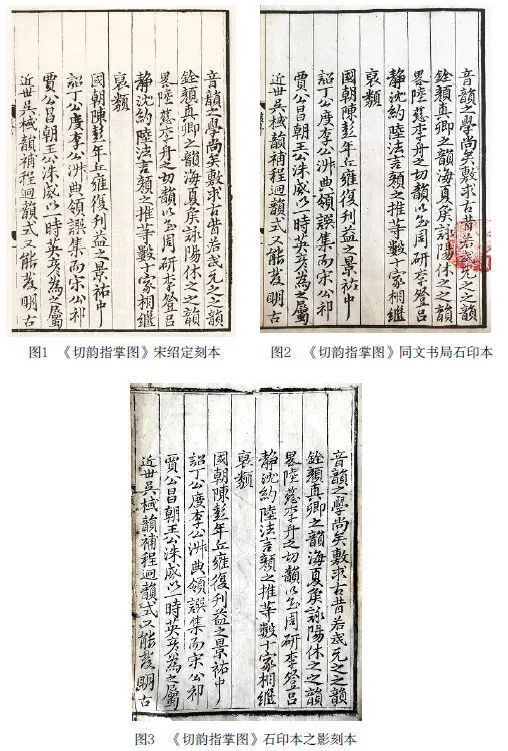 音韻之學尚矣敷求古昔若武元之之韻
銓顏真卿之韻海夏矦詠陽休之之韻
畧陸慈李舟之切韻以至周研李登吕
静沈約陸法言顏之推等數十家相継
裒類
國朝陳彭年丘雍復刋益之景祐中
詔丁公度李公淑典領譔集而宋公祁
賈公昌朝王公洙咸以一時英彦為之屬
近世吳棫韻補程迥韻式又能發明古
图1 《切韵指掌图》宋绍定刻本
音韻之學尚矣敷求古昔若武元之之韻
銓顏真卿之韻海夏矦詠陽休之之韻
畧陸慈李舟之切韻以至周研李登吕
静沈約陸法言顏之推等數十家相継
裒類
國朝陳彭年丘雍復刋益之景祐中
詔丁公度李公淑典領譔集而宋公祁
賈公昌朝王公洙咸以一時英彦為之屬
近世吳棫韻補程迥韻式又能發明古
图2 《切韵指掌图》同文书局石印本
音韻之學尚矣敷求古昔若武元之之韻
銓顏真卿之韻海夏矦詠陽休之之韻
畧陸慈李舟之切韻以至周研李登吕
静沈約陸法言顏之推等數十家相継
裒類
國朝陳彭年丘雍復刋益之景祐中
詔丁公度李公淑典領譔集而宋公祁
賈公昌朝王公洙咸以一時英彦為之屬
近世吳棫韻補程迥韻式又能發明古
图3 《切韵指掌图》石印本之影刻本